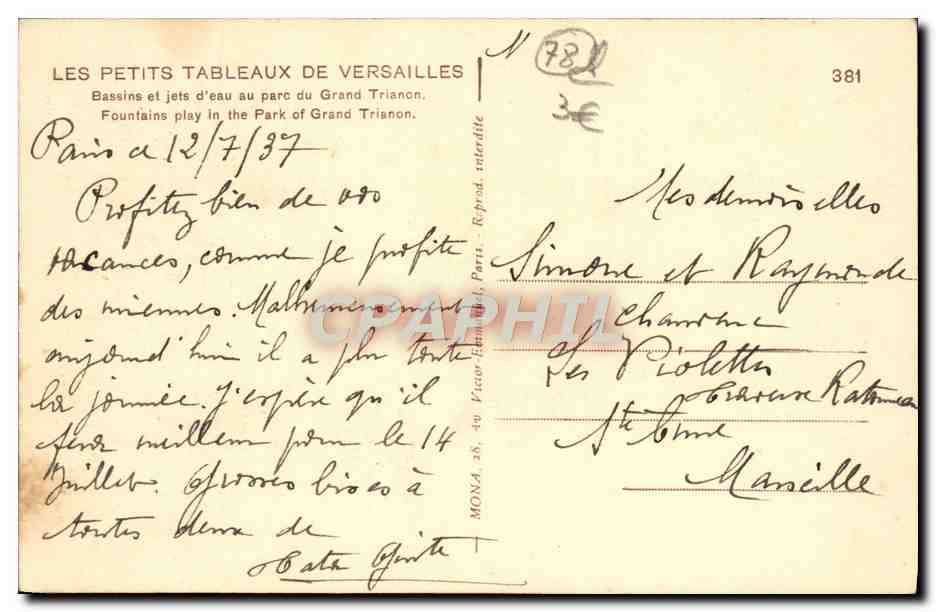 LES PETITS TABLEAUX DE VERSAILLES
Bassins et jets d'eau au parc du Grand Trianon.
Fountains play in the Park of Grand Trianon.
Paris le 12/7/37
Profitez bien de vos
vacances, comme je profite
des miennes. Malheureusement
aujourd'hui il a plu toute
la journée. J'espère qu'il
fera meilleur pour le 14
Juillet. Grosses bises à
toutes deux de
Tata
MONA, 28, Av Victor-Emmanuel, Paris. - Reprod. interdite
N
78
3€
381
Mesdemoiselles
Simone et Raymonde
Les Violettes
Traverse
Ste
Marseille
CPAPHIL